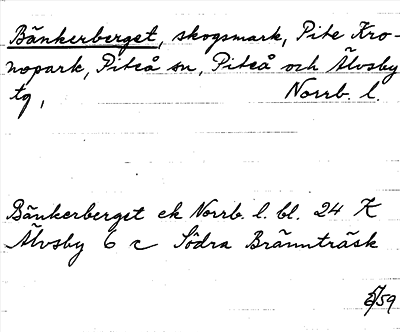 Bänkerberget, skogsmark, Pite Kro-
nopark, Piteå sn, Piteå och Älvsby
tg, Norrb. l.
Bänkerberget ek Norrb. l. bl. 24 K
Älvsby 6 c Södra Brännträsk
/59